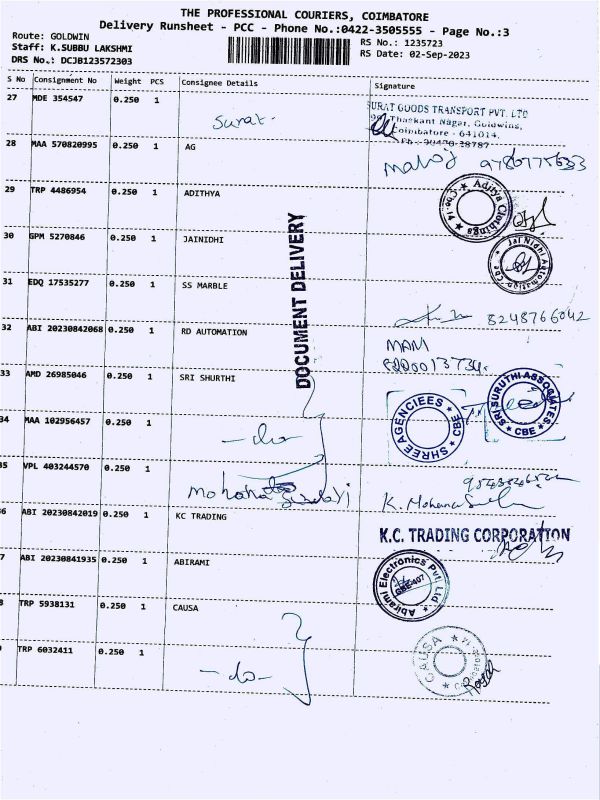 THE PROFESSIONAL COURIERS, COIMBATORE
Delivery Runsheet - PCC - Phone No.:0422-3505555 - Page No.:3
Route: GOLDWIN
Staff: K.SUBBU LAKSHMI
DRS No.: DCJB123572303
RS No.: 1235723
RS Date: 02-Sep-2023
S No Consignment No Weight PCS Consignee Details Signature
27 MDE 354547 0.250 1
Surat-
SURAT GOODS TRANSPORT PVT. LTD
Thaskant Nagar, Goldwins,
Coimbatore - 641014.
28 MAA 570820995 0.250 1 AG
29 TRP 4486954 0.250 1 ADITHYA
Aditya Clothings
30 GPM 5270846 0.250 1 JAINIDHI
Jai Nidhi Automation
DOCUMENT DELIVERY
31 EDQ 17535277 0.250 1 SS MARBLE
8248766042
32 ABI 20230842068 0.250 1 RD AUTOMATION
MANI
33 AMD 26985046 0.250 1 SRI SHURTHI
SHREE AGENCIEES CBE
SRI SURUTHI ASSOCIATES CBE
34 MAA 102956457 0.250 1
-do-
35 VPL 403244570 0.250 1
K. Mohana
6 ABI 20230842019 0.250 1 KC TRADING
K.C. TRADING CORPORATION
7 ABI 20230841935 0.250 1 ABIRAMI
Abirami Electronics Pvt. Ltd
8 TRP 5938131 0.250 1 CAUSA
CAUSA
TRP 6032411 0.250 1
-do-